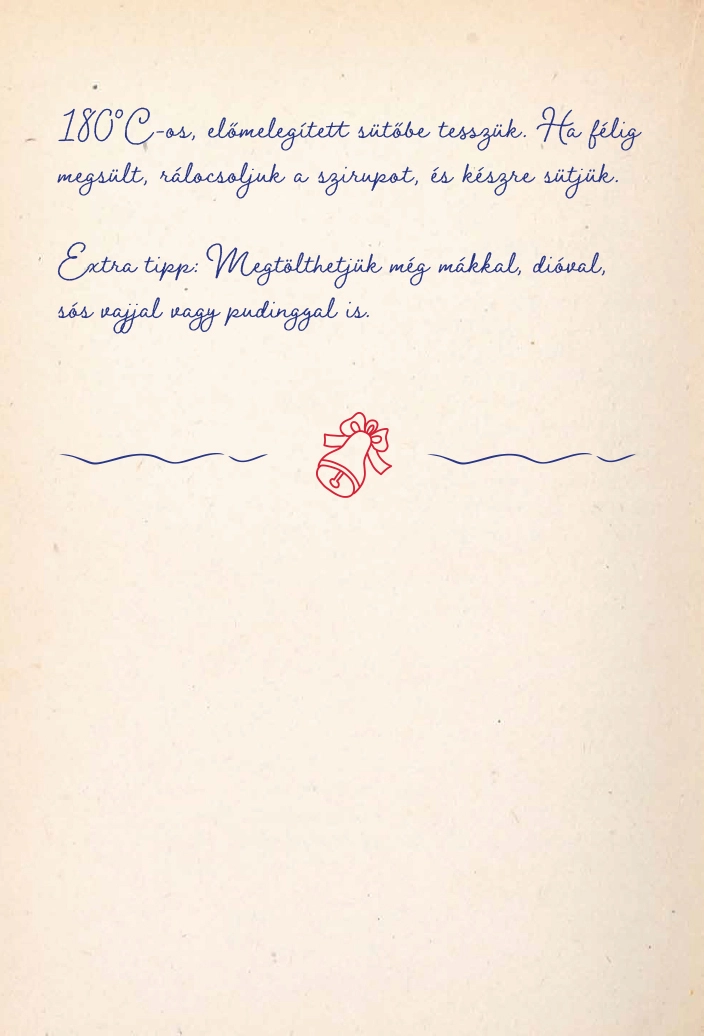 180°C-os, előmelegített sütőbe tesszük. Ha félig
megsült, rálocsoljuk a szirupot, és készre sütjük.
Extra tipp: Megtölthetjük még mákkal, dióval,
sós vajjal vagy pudinggal is.